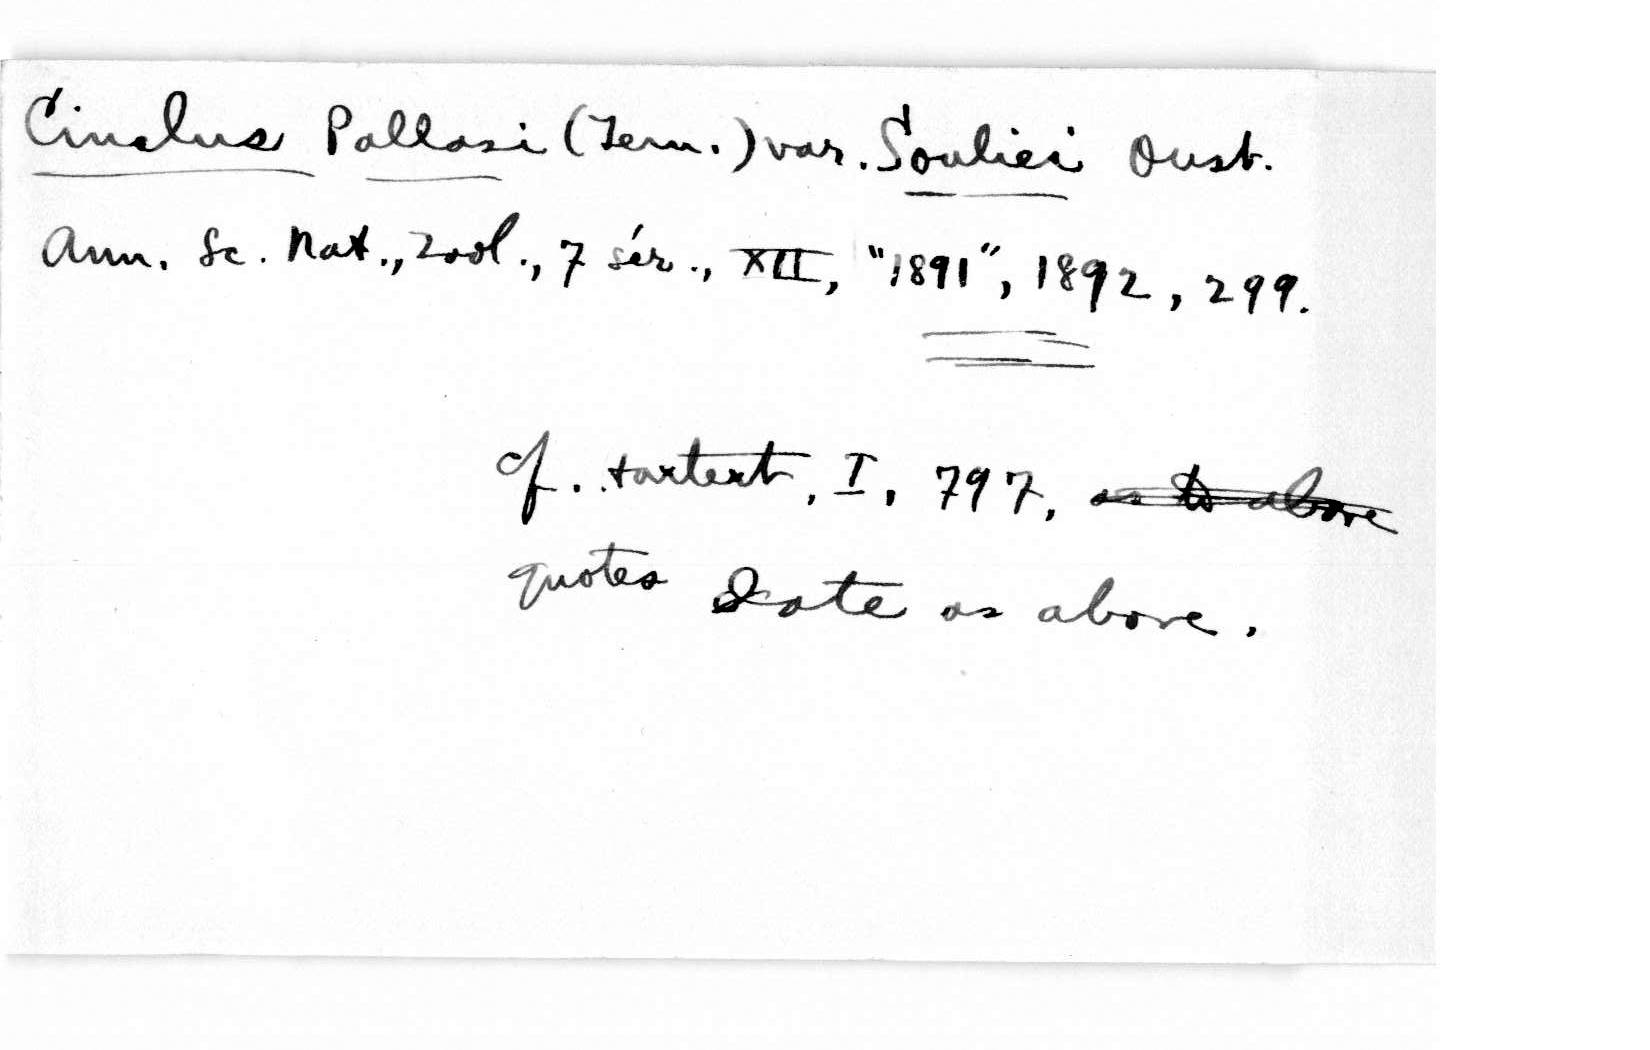 Cinclus Pallasi (Tem.) var. Souliei Oust.
Ann. Sc. Nat., Zool., 7 sér., XII, "1891", 1892, 299.
cf. Hartert, I, 797, as to above
quotes date as above.